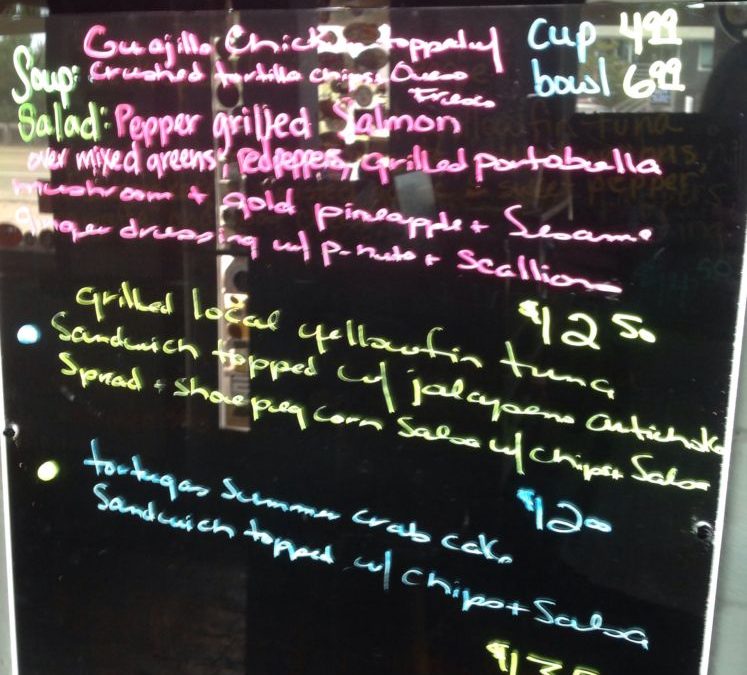 Guajillo Chicken topped w/ cup 4.99
Soup: crushed tortilla chips + Queso bowl 6.99
Fresco
Salad: Pepper grilled Salmon
over mixed greens, Red peppers, grilled portabella
mushroom + gold pineapple + Sesame
ginger dressing w/ p-nuts + scallions
$12.50
grilled local yellowfin tuna
Sandwich topped w/ jalapeno artichoke
Spread + shoepeg corn Salsa w/ chips + Salsa
$12.00
tortugas Summer crab cake
Sandwich topped w/ chips + Salsa